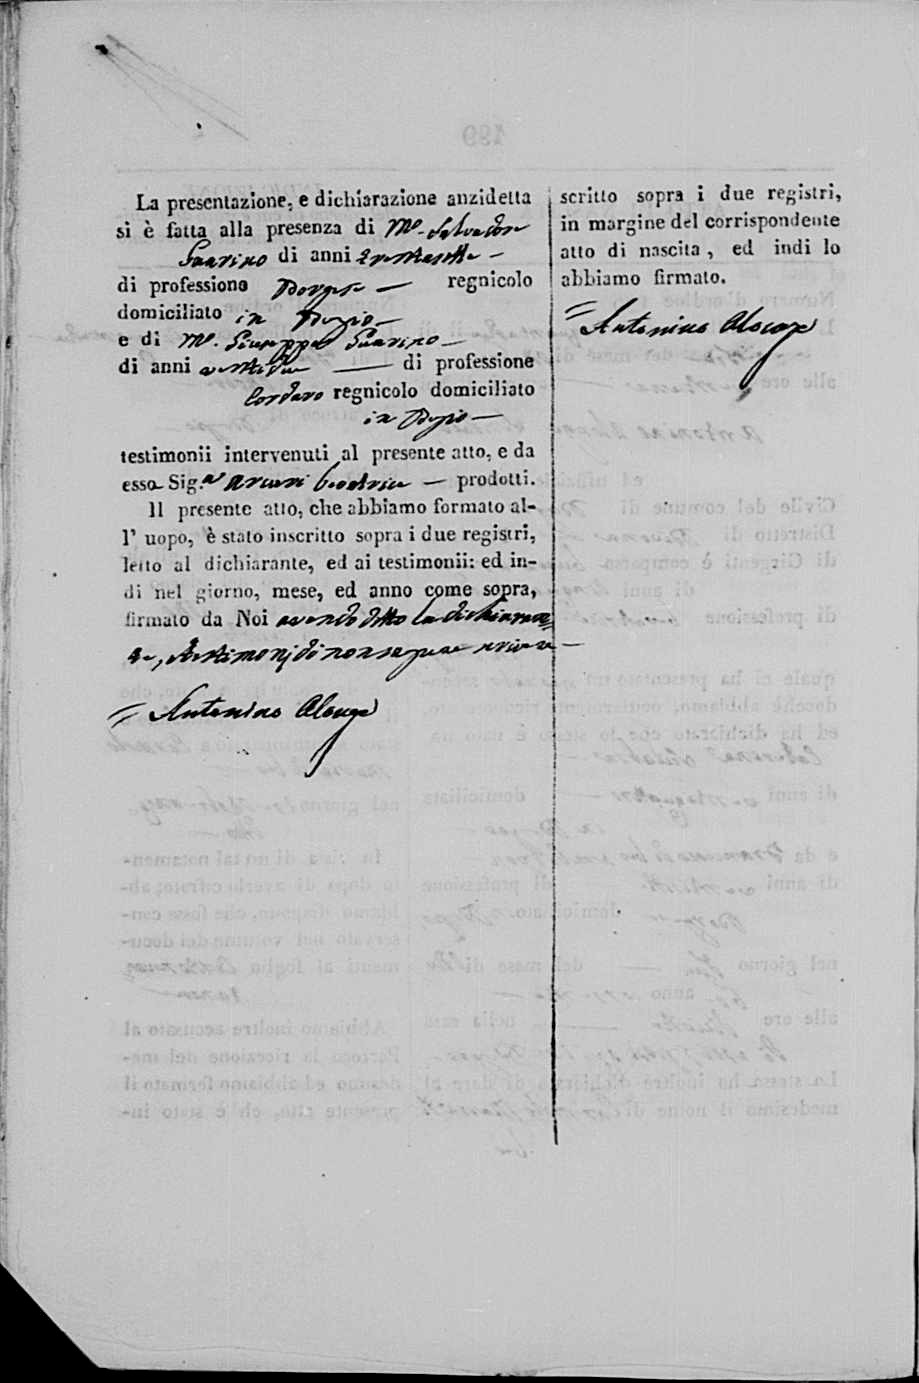 La presentazione, e dichiarazione anzidetta
si è fatta alla presenza di Mo. Salvadore
Guarino di anni trentasette
di professione Borgese regnicolo
domiciliato in
e di Mo. Giuseppe Guarino
di anni di professione
Cordaro regnicolo domiciliato
in
testimonii intervenuti al presente atto, e da
essa Sig.ra Arcuri Beatrice prodotti.
Il presente atto, che abbiamo formato al-
l' uopo, è stato inscritto sopra i due registri,
letto al dichiarante, ed ai testimonii: ed in-
di nel giorno, mese, ed anno come sopra,
firmato da Noi avendo detto la dichiaran=
te, testimonj di non sapere scrivere
= Antonino
scritto sopra i due registri,
in margine del corrispondente
atto di nascita, ed indi lo
abbiamo firmato.
= Antonino